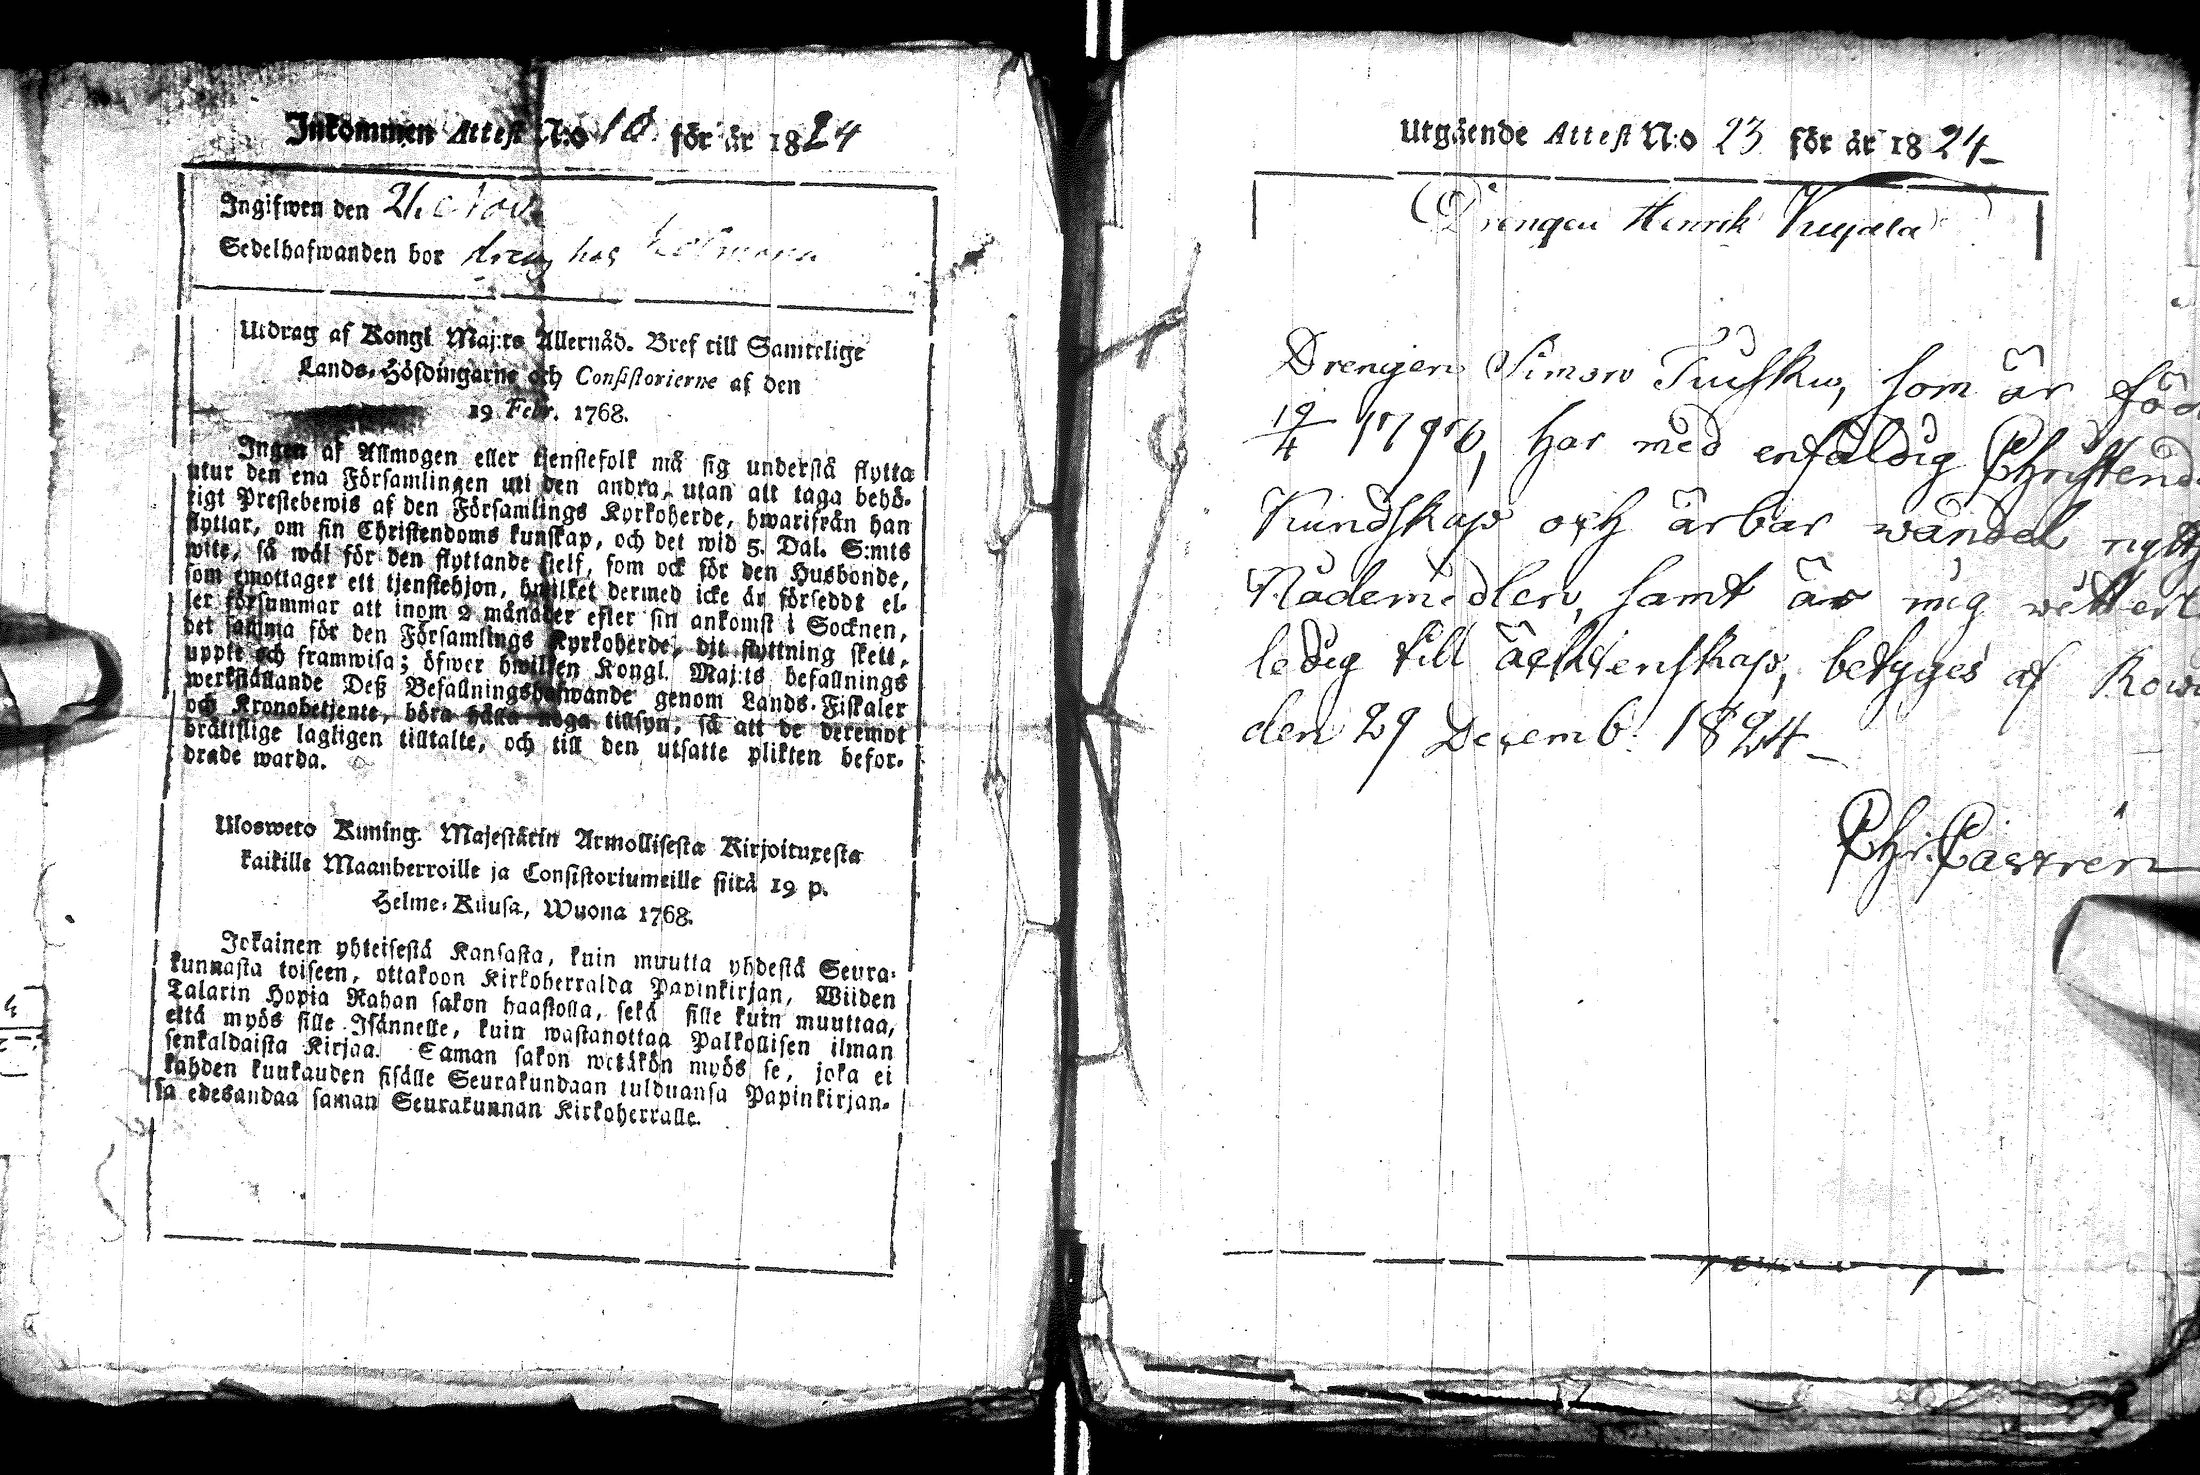 Inkommen Attest N:o 10 för år 1824
Ingifwen den 21 Nov.
Sedelhafwanden bor dreng hos
Utdrag af Kongl Maj:ts Allernåd. Bref till Samtelige
Lands-Höfdingarne och Consistorierne af den
19 Febr. 1768.
Ingen af Allmogen eller tjenstefolk må sig understå flytta
utur den ena Församlingen uti den andra, utan att taga behö-
rigt Prestebewis af den Församlings Kyrkoherde, hwarifrån han
flyttar, om sin Christendoms kunskap, och det wid 5. Dal. S:mts
wite, så wäl för den flyttande sjelf, som ock för den Husbonde,
som emottager ett tjenstehjon, hwilket dermed icke är försedt el-
ler försummar att inom 2 månader efter sin ankomst i Socknen,
det samma för den Församlings Kyrkoherde, dit flyttning skett,
uppte och framwisa; öfwer hwilken Kongl. Maj:ts befallnings
werkställande Deß Befallningshafwande genom Lands-Fiskaler
och Kronobetjente, böra hålla noga tillsyn, så att de deremot
bråttslige lagligen tilltalte, och till den utsatte plikten befor-
drade warda.
Ulosweto Kuning. Majestätin Armollisesta Kirjoituxesta
kaikille Maanherroille ja Consistoriumeille siitä 19 p.
Helme-Kuusa, Wuona 1768.
Jokainen yhteisestä Kansasta, kuin muutta yhdestä Seura-
kunnasta toiseen, ottakoon Kirkoherralda Papinkirjan, Wiiden
Talarin Hopia Rahan sakon haastolla, sekä sille kuin muuttaa,
että myös sille Isännelle, kuin wastanottaa Palkollisen ilman
senkaldaista Kirjaa. Saman sakon wetäkön myös se, joka ei
kahden kuukauden sisälle Seurakundaan tulduansa Papinkirjan-
sa edesandaa saman Seurakunnan Kirkoherralle.
Utgående Attest N:o 23 för år 1824
Drengen Henrik Kujala
Drengen Simon som är föd
19/4 har med enfaldig Christend
Kundskap och ärbar wandel nytt
Nådemedlen, samt är mig wetterl
ledig till ächtenskap, betyges af Row
den 29 Decemb. 1824
Chr. Castrén